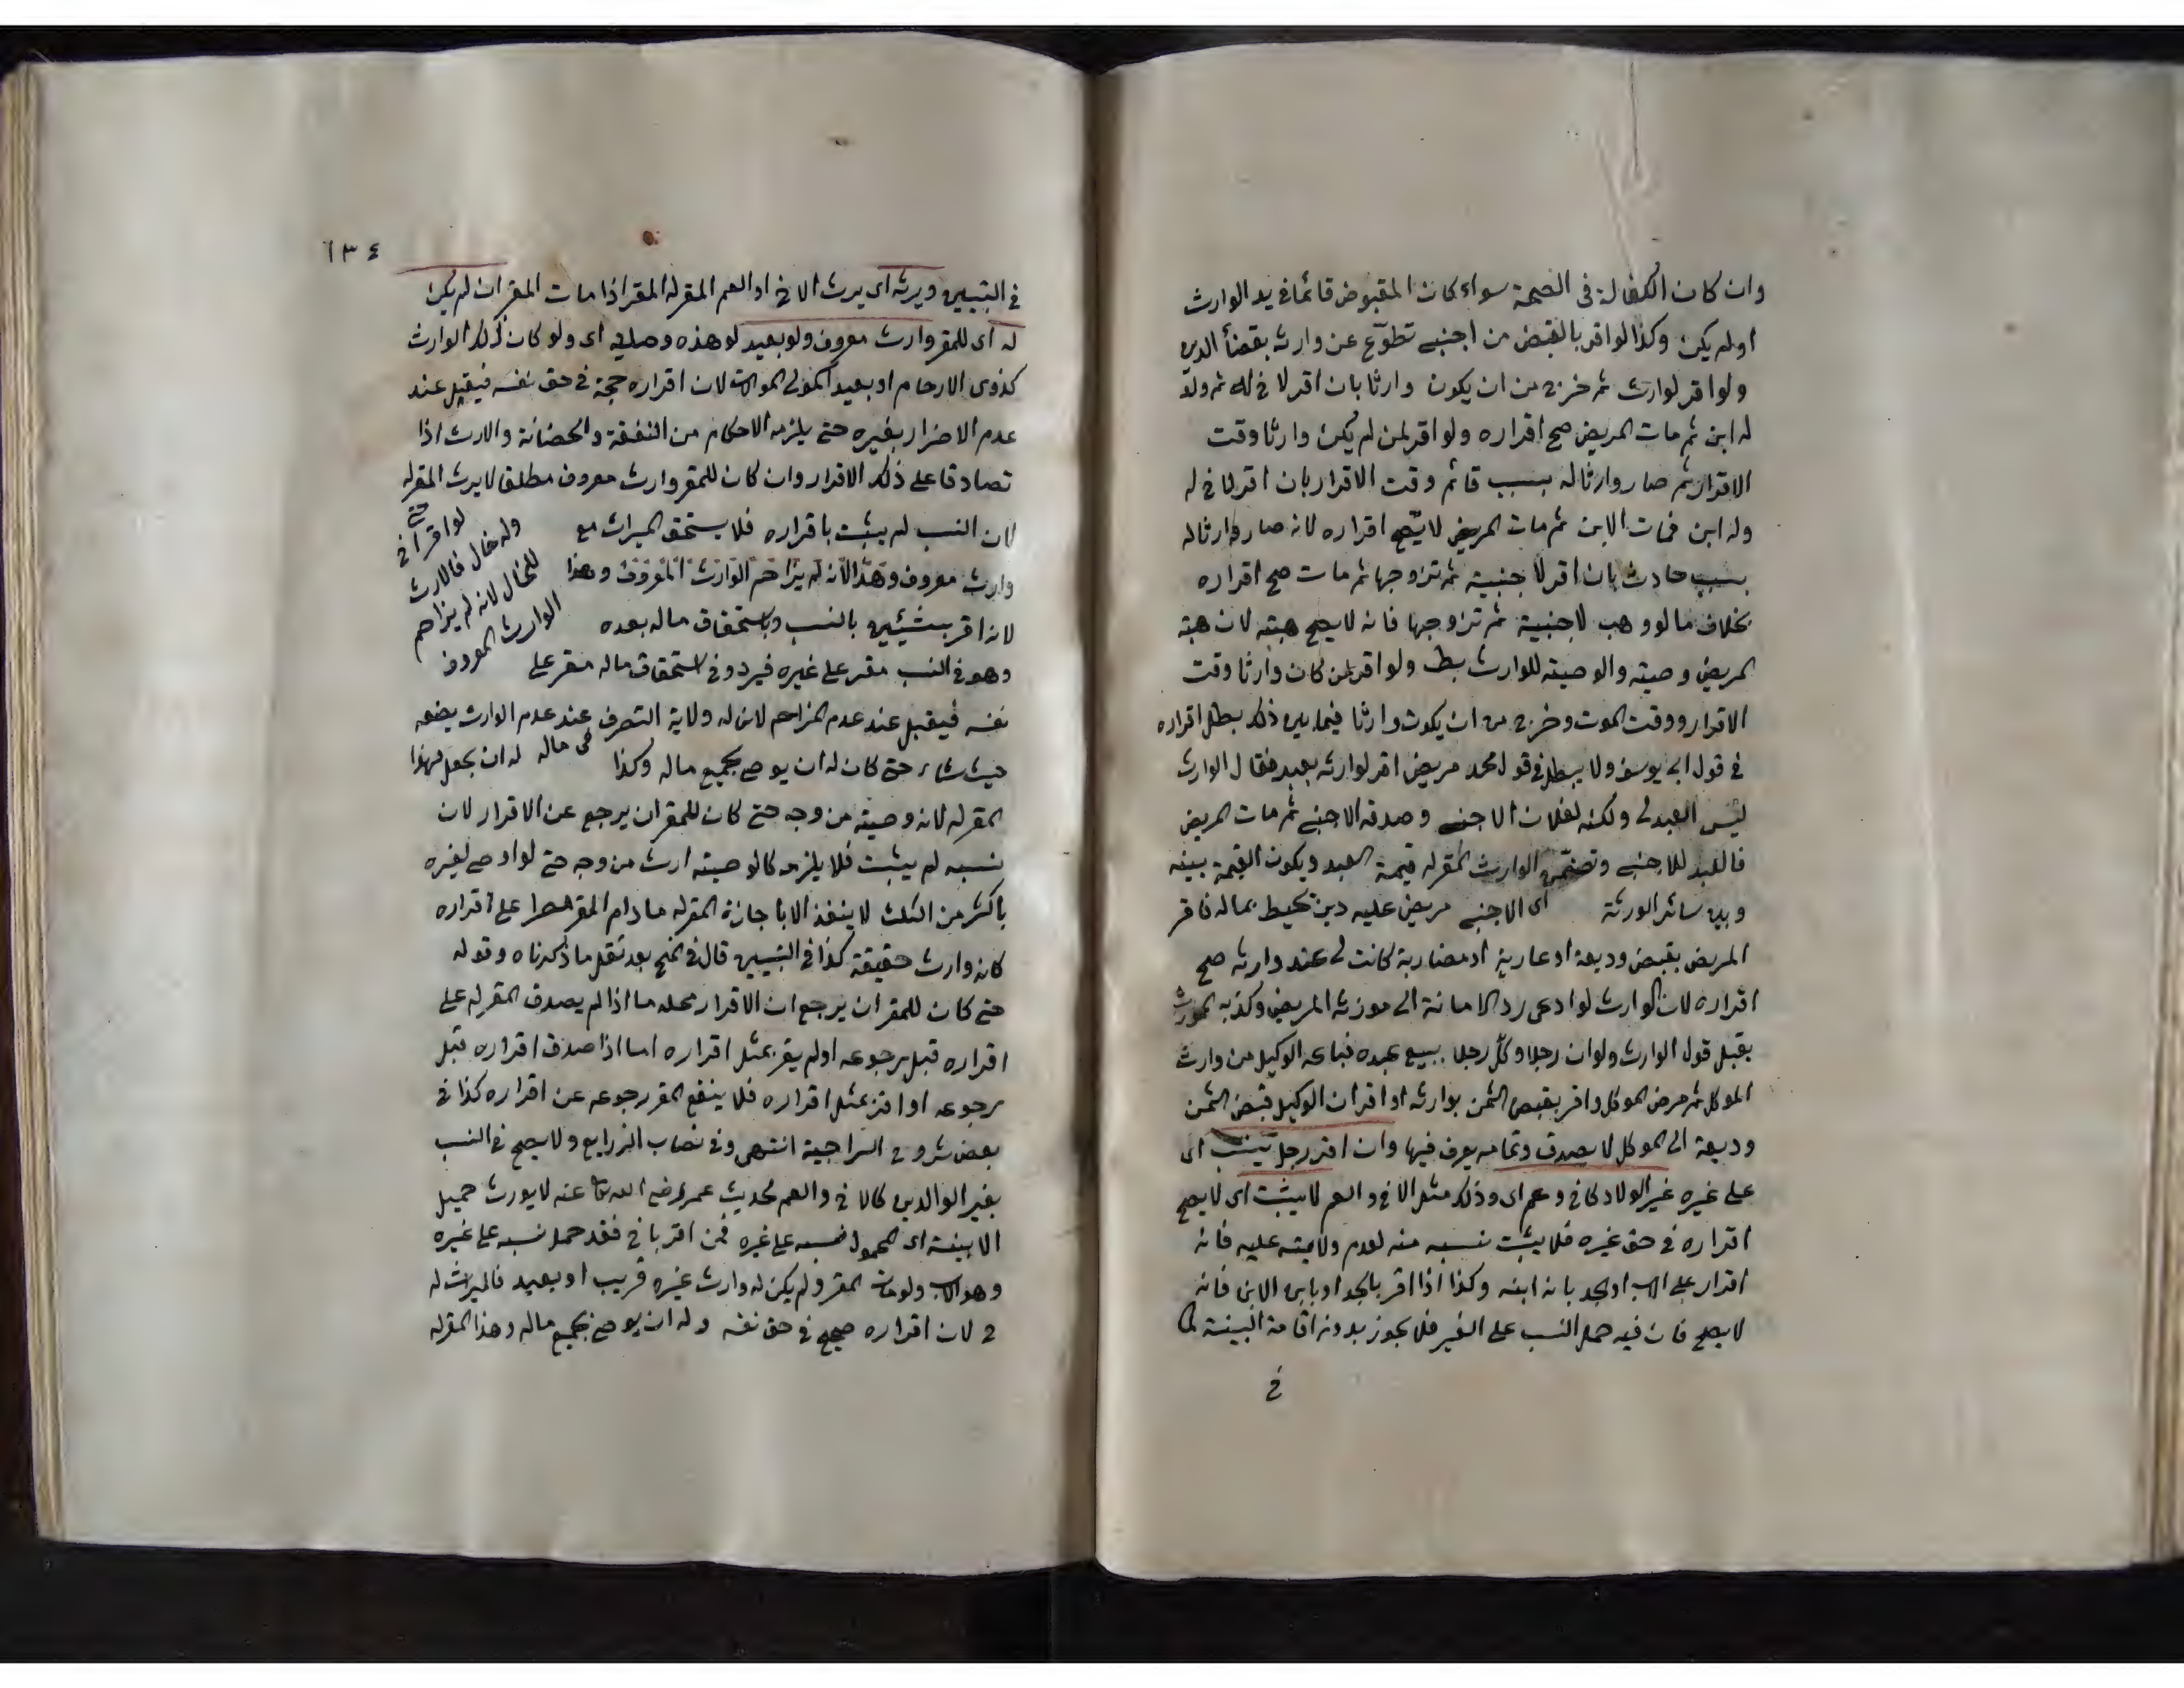 وان كان الكفالة فى الصحة سواء كان المقبوض قائما فى يد الوارث
او لم يكن وكذا لو اقر بالقبض من اجنبى تطوع عن وارثه بقضأ الدين
ولو اقر لوارث ثم خرج من ان يكون وارثا بان اقر لاخ له ثم ولد
له ابن ثم مات المريض صح اقراره ولو اقر لمن لم يكن وارثا وقت
الاقرار ثم صار وارثا له بسبب قائم وقت الاقرار بان اقر لاخ له
وله ابن فمات الابن ثم مات المريض لا يصح اقراره لانه صار وارثا له
بسبب حادث بان اقر لاجنبية ثم تزوجها ثم مات صح اقراره
بخلاف ما لو وهب لاجنبية ثم تزوجها فانه لا يصح هبته لان هبة
المريض وصيته والوصيته للوارث بط ولو اقر لمن كان وارثا وقت
الاقرار ووقت الموت وخرج من ان يكون وارثا فيما بين ذلك بطل اقراره
فى قول ابى يوسف ولا يبطل فى قول محمد مريض اقر لوارثه بعبد فقال الوارث
ليس العبد لى ولكنه لفلان الاجنبى وصدقه الاجنبى ثم مات المريض
فالعبد للاجنبى وتضمن الوارث المقر له قيمة العبد ويكون القيمة بينه
وبين سائر الورثة اى الاجنبى مريض عليه دين تحيط بماله فاقر
المريض بقبض وديعة او عارية او مضاربة كانت له عند وارثه صح
اقراره لان الوارث لو ادعى رد الامانة الى مورثه المريض وكذبه المورث
يقبل قول الوارث ولو ان رجلا وكل رجلا ببيع عبده فباعه الوكيل من وارث
الموكل ثم مرض الموكل واقر بقبض الثمن بوارثه او اقر ان الوكيل قبض الثمن
وديعة الى الموكل لا يصدق وتمامه يعرف فيها وان اقر رجل بنسب اى
على غيره غير الولاد كاخ وعم اى وذلك مثل الاخ والعم لا يثبت اى لا يصح
اقراره فى حق غيره فلا يثبت نسبه منه لعدم ولايته عليه فانه
اقرار على الاب او الجد بانه ابنه وكذا اذا اقر بالجد او بابن الابن فانه
لا يصح فان فيه حمل النسب على الغير فلا يجوز بدونه اقامة البينة كما
فى
١٣٤
فى التبيين ويرثه اى يرث الاخ او العم المقر له المقر اذا مات المقر ان لم يكن
له اى للمقر وارث معروف ولو بعيد لو هذه وصلية اى ولو كان ذلك الوارث
كذوى الارحام او بعيد المولى الموالات لان اقراره حجة فى حق نفسه فيقبل عند
عدم الاضرار بغيره حتى يلزمه الاحكام من النفقة والحضانة والارث اذا
تصادقا على ذلك الاقرار وان كان للمقر وارث معروف مطلق لا يرث المقر له
لان النسب لم يثبت باقراره فلا يستحق الميراث مع
وارث معروف وهذا لانه لم يزاحم الوارث المعروف وهذا
لانه اقر بشيئين بالنسب وباستحقاق ماله بعده
وهو فى النسب مقر على غيره فيرد وفى استحقاق ماله مقر على
حتى لو اقر باخ
وله خال فالارث
للخال لانه لم يزاحم
الوارث المعروف
نفسه فيقبل عند عدم المزاحم لان له ولاية التصرف عند عدم الوارث يضعه
فى ماله
حيث شاء حتى كان له ان يوصى بجميع ماله وكذا له ان يجعل لهذا
المقر له لانه وصيته من وجه حتى كان للمقر ان يرجع عن الاقرار لان
نسبه لم يثبت فلا يلزمه كالوصيته ارث من وجه حتى لو اوصى لغيره
باكثر من الثلث لا ينفذ الا باجازة المقر له ما دام المقر مصرا على اقراره
كانه وارث حقيقة كذا فى التبيين قال فى المنح بعد نقل ما ذكرناه وقوله
حتى كان للمقر ان يرجع ان الاقرار محله ما اذا لم يصدق المقر له على
اقراره قبل رجوعه او لم يقر بمثل اقراره اما اذا صدق اقراره قبل
رجوعه او اقر بمثل اقراره فلا ينفع المقر رجوعه عن اقراره كذا فى
بعض شروح السراجية انتهى وفى نصاب الزرايع ولا يصح فى النسب
بغير الوالدين كالاخ والعم لحديث عمر رضى الله تعا عنه لا يورث حميل
الا ببينة اى المحمول نسبه على غيره فمن اقر باخ فقد حمل نسبه على غيره
وهو الاب ولو مات المقر ولم يكن له وارث غيره قريب او بعيد فالميراث له
ح لان اقراره صحيح فى حق نفسه وله ان يوصى بجميع ماله وهذا المقر له